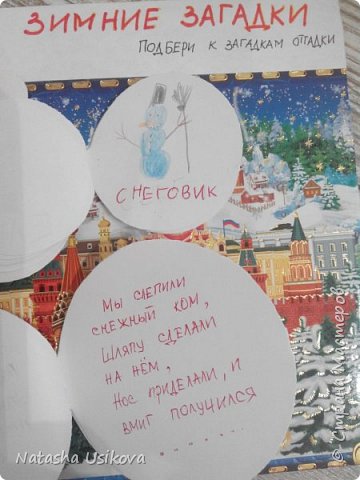 ЗИМНИЕ ЗАГАДКИ
ПОДБЕРИ К ЗАГАДКАМ ОТГАДКИ
СНЕГОВИК
МЫ СЛЕПИЛИ
СНЕЖНЫЙ КОМ,
ШЛЯПУ СДЕЛАЛИ
НА НЁМ,
НОС ПРИДЕЛАЛИ, И
ВМИГ ПОЛУЧИЛСЯ
. . . . . . .
Natasha Usikova
© Страна Мастеров